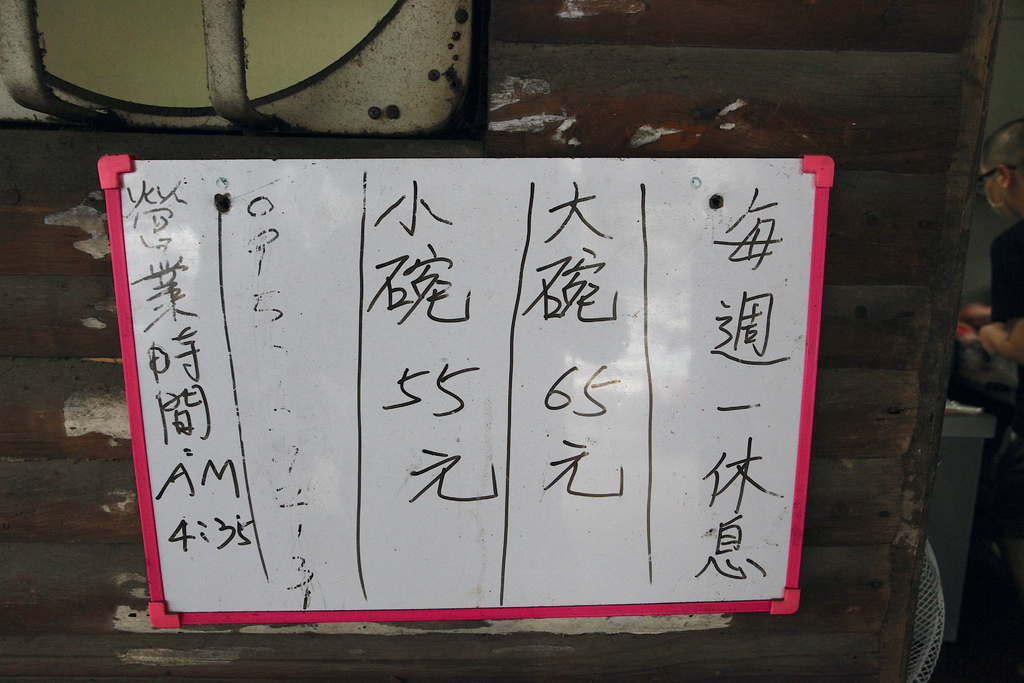 每週一休息
大碗65元
小碗55元
營業時間AM4:35